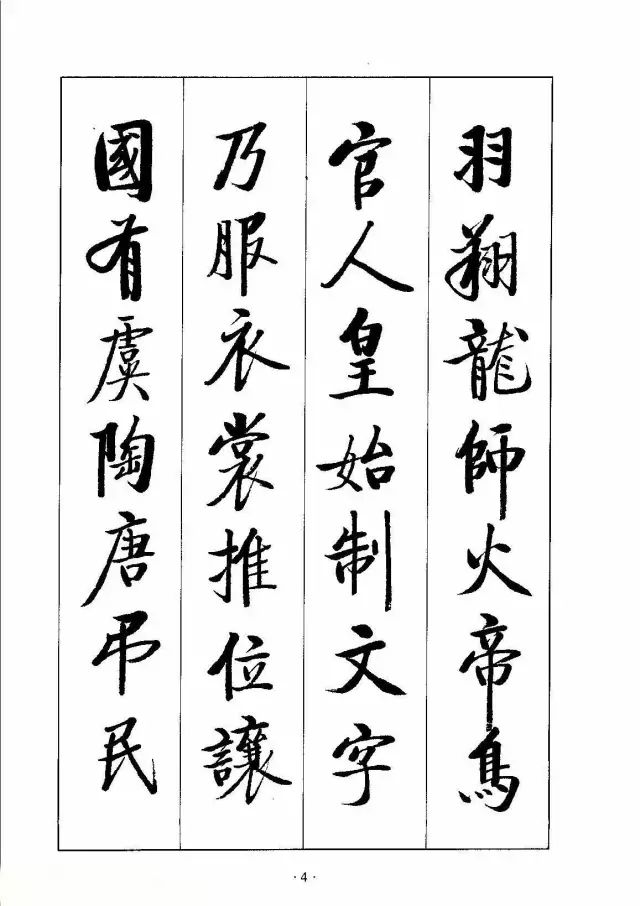 羽翔龍師火帝鳥
官人皇始制文字
乃服衣裳推位讓
國有虞陶唐弔民
·4·